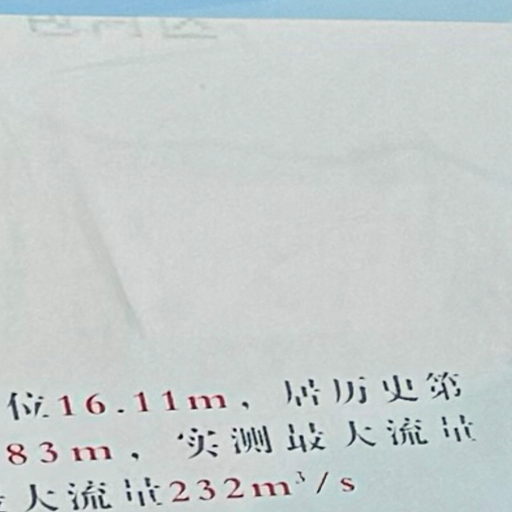 位16.11m，居历史第
83m，实测最大流量
大流量232m³/s